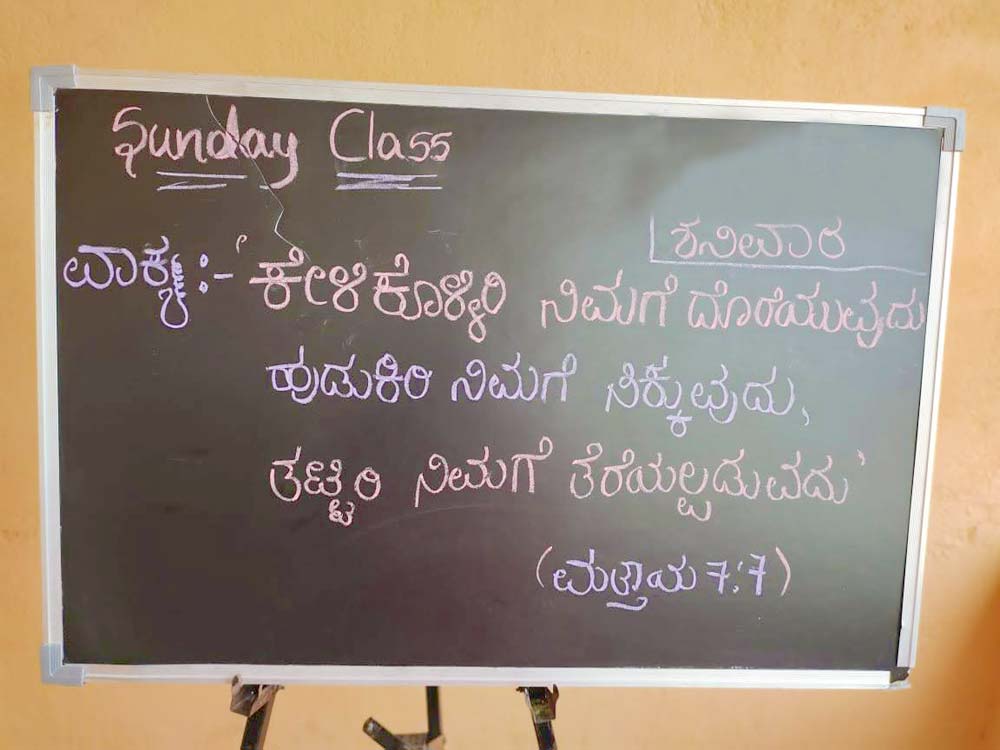 Sunday Class
ಶನಿವಾರ
ವಾಕ್ಯ :- 'ಕೇಳಿಕೊಳ್ಳಿರಿ ನಿಮಗೆ ದೊರೆಯುವುದು
ಹುಡುಕಿರಿ ನಿಮಗೆ ಸಿಕ್ಕುವುದು,
ತಟ್ಟಿರಿ ನಿಮಗೆ ತೆರೆಯಲ್ಪಡುವದು'
(ಮತ್ತಾಯ 7:7)